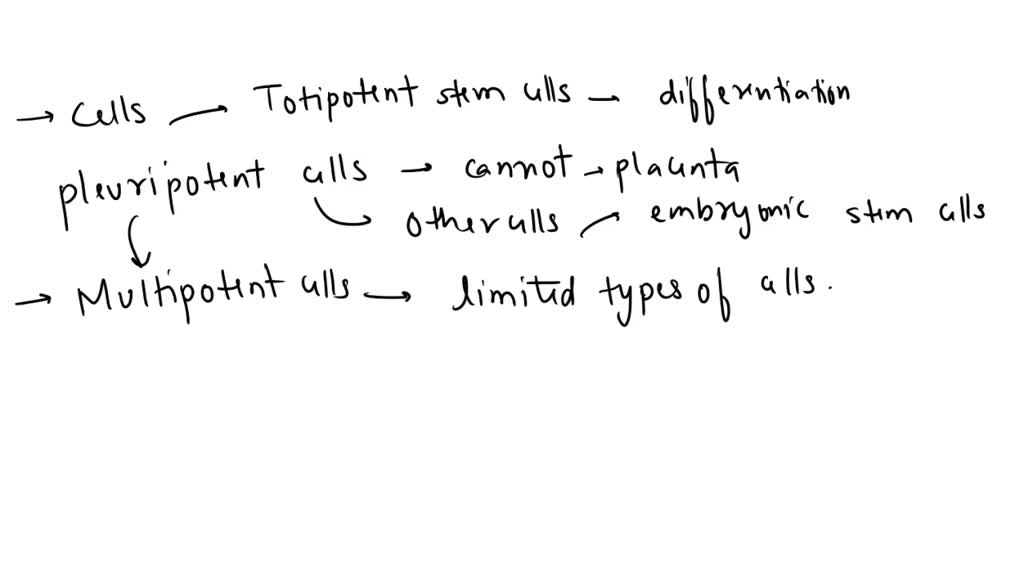 → Cells → Totipotent stem cells → differentiation
pleuripotent cells → cannot → placenta
other cells → embryonic stem cells
→ Multipotent cells → limited types of cells.